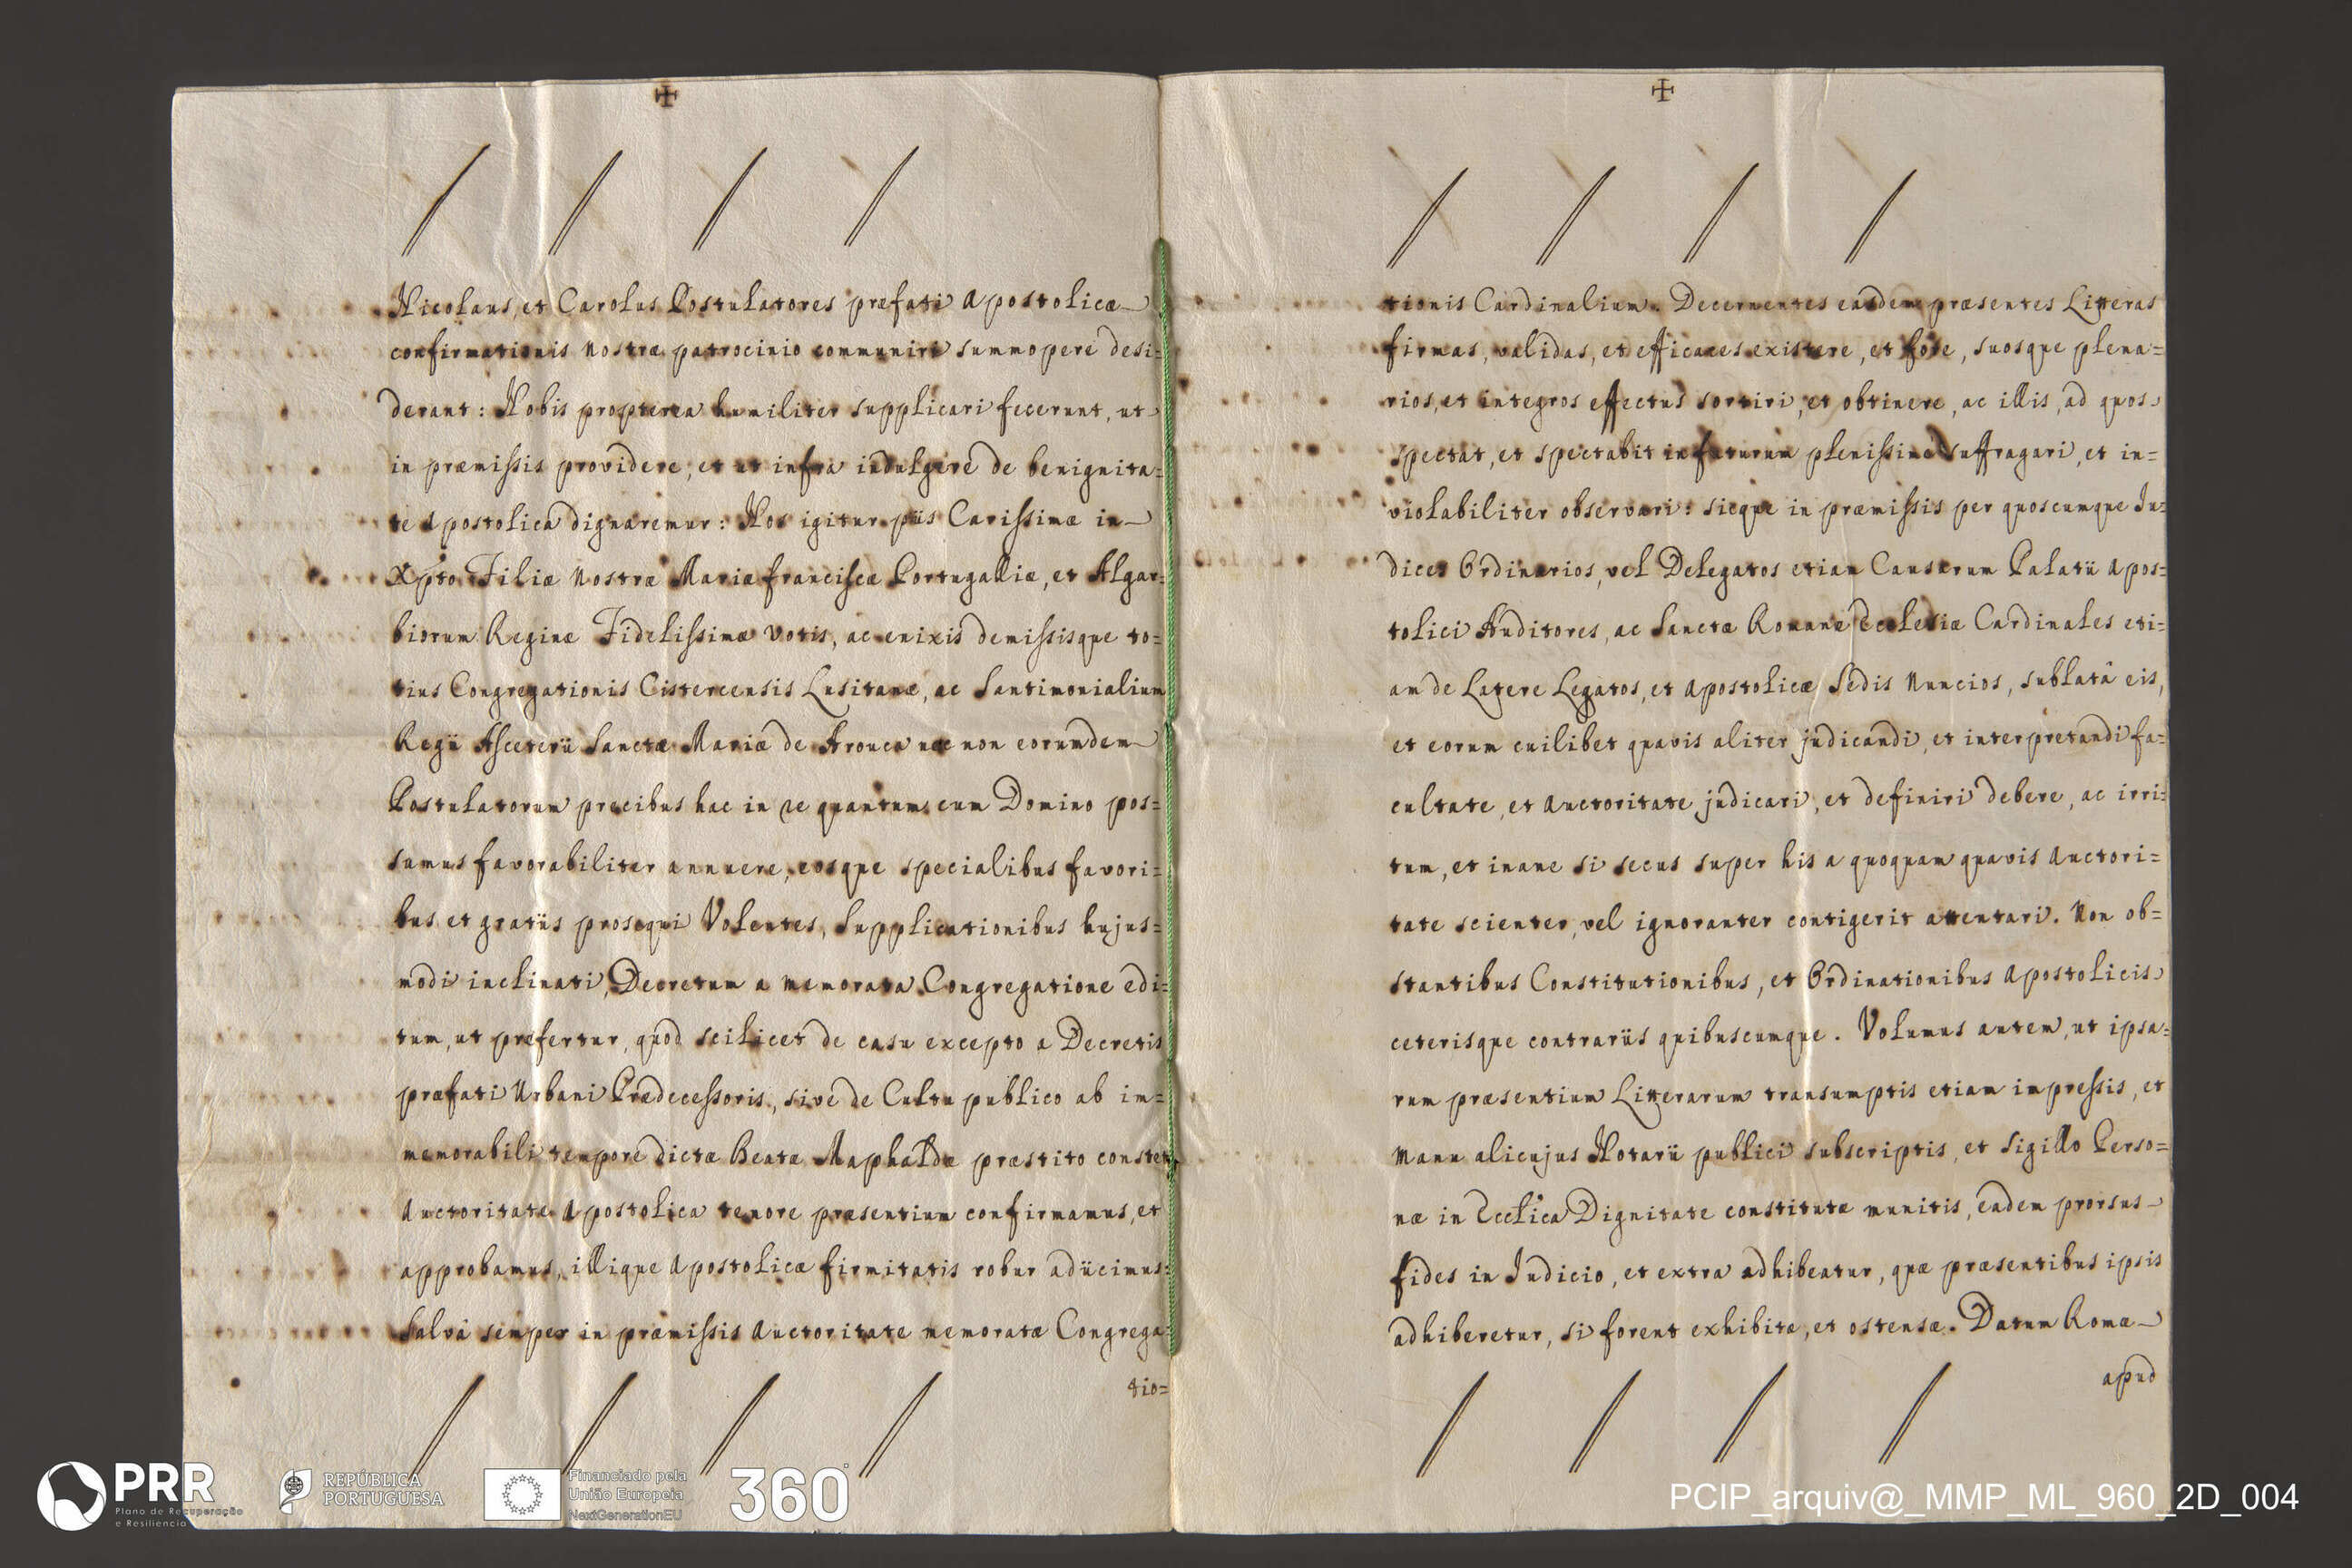 Nicolaus, et Carolus Postulatores præfati Apostolicæ
confirmationis nostræ patrocinio communiri summopere desi=
derant: Nobis propterea humiliter supplicari fecerunt, ut
in præmissis providere, et ut infra indulgere de benignita=
te Apostolica dignaremur: Nos igitur piis Carissimæ in
Xpto Filiæ Nostræ Mariæ Franciscæ Portugalliæ, et Algar=
biorum Reginæ Fidelissimæ votis, ac enixis demissisque to=
tius Congregationis Cistercensis Lusitanæ, ac Santimonialium
Regii Asceterii Sanctæ Mariæ de Arouca nec non eorumdem
Postulatorum precibus hac in re quantum cum Domino pos=
sumus favorabiliter annuere, eosque specialibus favori=
bus et gratiis prosequi Volentes, Supplicationibus hujus=
modi inclinati, Decretum a memorata Congregatione edi=
tum, ut præfertur, quod scilicet de casu excepto a Decretis
præfati Urbani Prædecessoris, sive de Cultu publico ab im=
memorabili tempore dictæ Beatæ Maphaldæ præstito constet,
Auctoritate Apostolica tenore præsentium confirmamus, et
approbamus, illique Apostolicæ firmitatis robur adiicimus:
Salvâ semper in præmissis Auctoritate memoratæ Congrega=
tio=
tionis Cardinalium. Decernentes easdem præsentes Litteras
firmas, validas, et efficaces existere, et fore, suosque plena=
rios, et integros effectus sortiri, et obtinere, ac illis, ad quos
spectat, et spectabit in futurum plenissime suffragari, et in=
violabiliter observari: sicque in præmissis per quoscumque Ju=
dices Ordinarios, vel Delegatos etiam Causarum Palatii Apos=
tolici Auditores, ac Sanctæ Romanæ Ecclesiæ Cardinales eti=
am de Latere Legatos, et Apostolicæ Sedis Nuncios, sublatâ eis,
et eorum cuilibet quavis aliter judicandi, et interpretandi fa=
cultate, et Auctoritate judicari, et definiri debere, ac irri=
tum, et inane si secus super his a quoquam quavis Auctori=
tate scienter, vel ignoranter contigerit attentari. Non ob=
stantibus Constitutionibus, et Ordinationibus Apostolicis
ceterisque contrariis quibuscumque. Volumus autem, ut ipsa=
rum præsentium Litterarum transumptis etiam impressis, et
Manu alicujus Notarii publici subscriptis, et Sigillo Perso=
næ in Ecclica Dignitate constitutæ munitis, eadem prorsus
fides in Judicio, et extra adhibeatur, quæ præsentibus ipsis
adhiberetur, si forent exhibitæ, et ostensæ. Datum Romæ
apud
PRR
Plano de Recuperação
e Resiliência
REPÚBLICA
PORTUGUESA
Financiado pela
União Europeia
NextGenerationEU
360°
PCIP_arquiv@_MMP_ML_960_2D_004